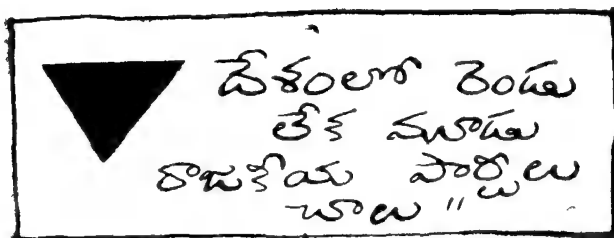 దేశంలో రెండు
లేక మూడు
రాజకీయ పార్టీలు
చాలు "